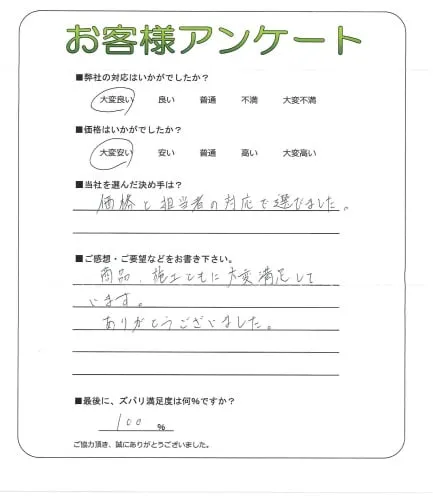 お客様アンケート
■弊社の対応はいかがでしたか？
大変良い 良い 普通 不満 大変不満
■価格はいかがでしたか？
大変安い 安い 普通 高い 大変高い
■当社を選んだ決め手は？
価格と担当者の対応で選びました。
■ご感想・ご要望などをお書き下さい。
商品、施工ともに大変満足して
います。
ありがとうございました。
■最後に、ズバリ満足度は何％ですか？
100 ％
ご協力頂き、誠にありがとうございました。